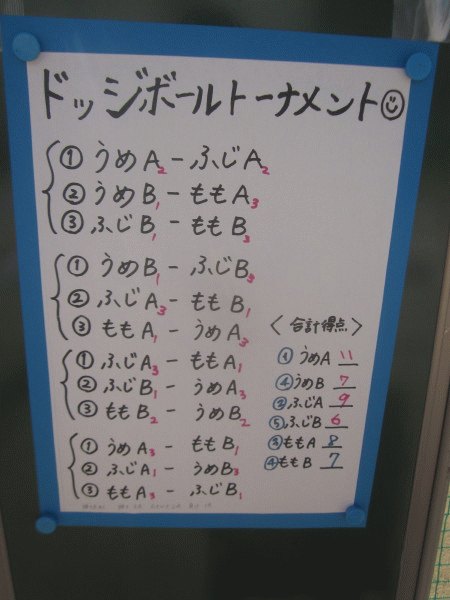 ドッジボールトーナメント
① うめA2 - ふじA2
② うめB1 - ももA3
③ ふじB1 - ももB3
① うめB1 - ふじB3
② ふじA3 - ももB1
③ ももA1 - うめA3
① ふじA3 - ももA1
② ふじB1 - うめA3
③ ももB2 - うめB2
① うめA3 - ももB1
② ふじA1 - うめB3
③ ももA3 - ふじB1
〈合計得点〉
① うめA 11
④ うめB 7
② ふじA 9
⑤ ふじB 6
③ ももA 8
④ ももB 7